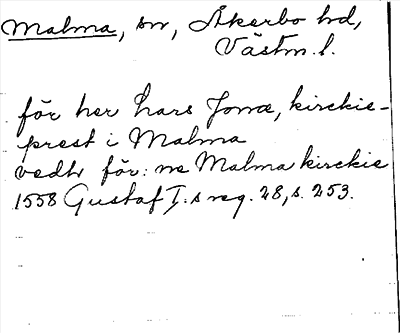 Malma, sn, Åkerbo hd,
Västm. l.
för her Lars Jonæ, kirckie-
prest i Malma
vedtr för: ne Malma kirckie
1558 Gustaf I: s reg. 28, s. 253.